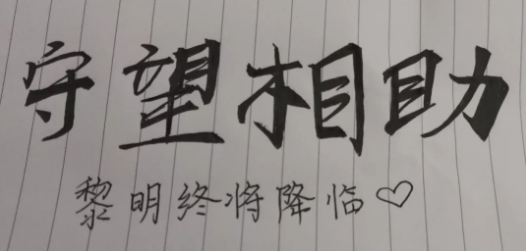 守望相助
黎明终将降临♡